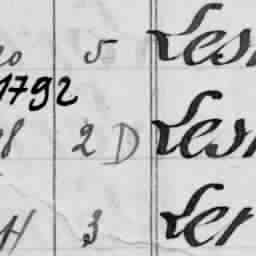 20 5 Les
1792
8 2 D Les
H 3 Ler